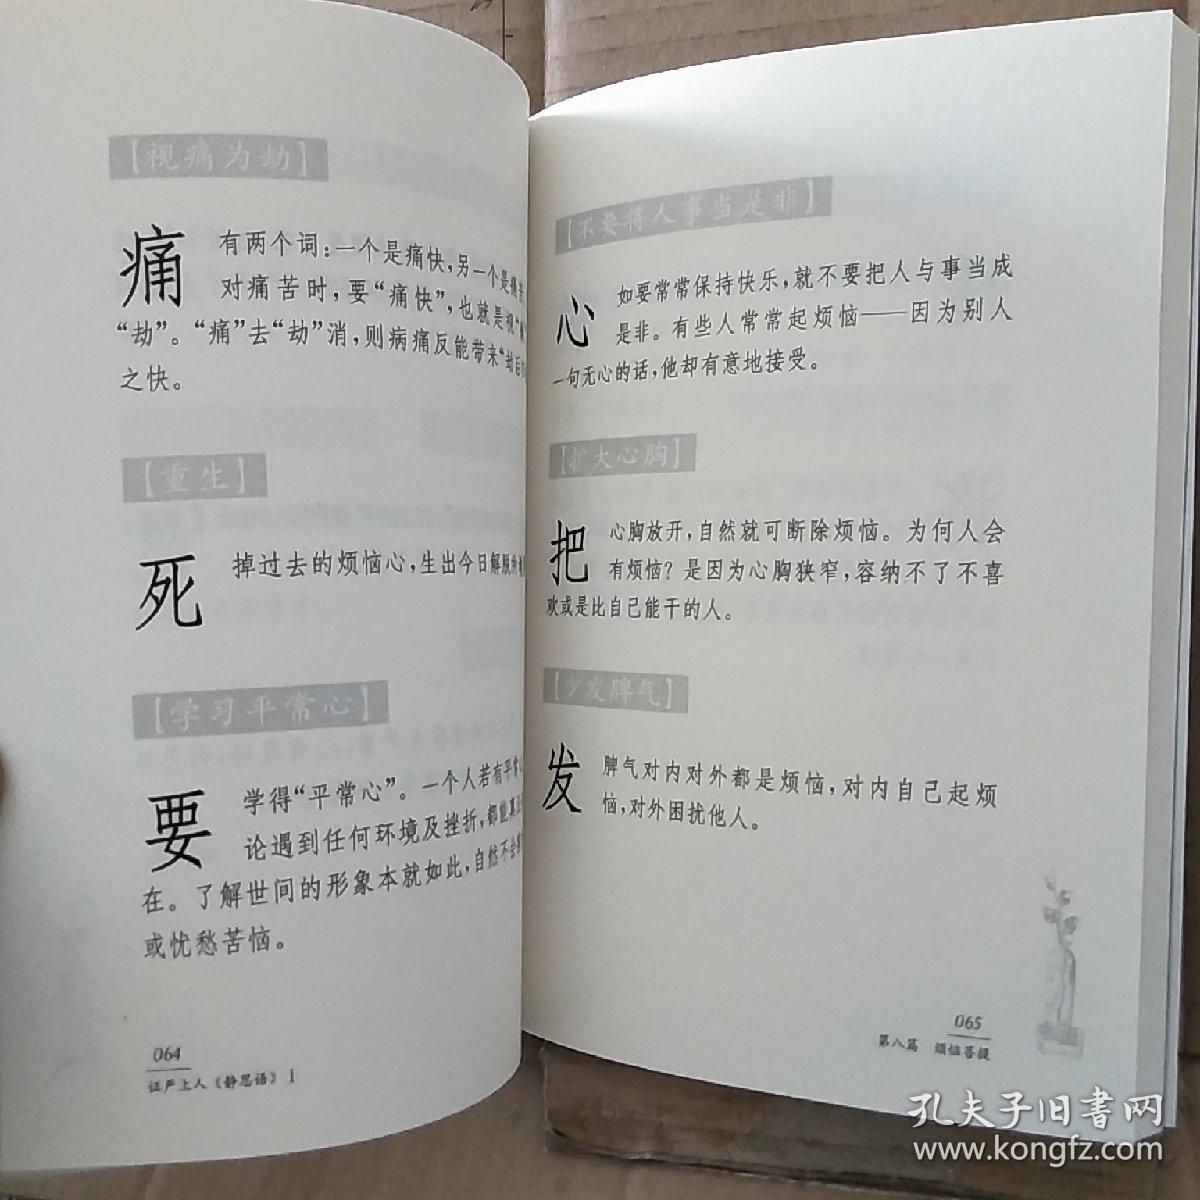 【视痛为劫】
痛 有两个词：一个是痛快，另一个是痛
对痛苦时，要“痛快”，也就是视“
“劫”。“痛”去“劫”消，则病痛反能带来“劫后
之快。
【重生】
死 掉过去的烦恼心，生出今日解脱的
【学习平常心】
要 学得“平常心”。一个人若有平常
论遇到任何环境及挫折，都能真
在。了解世间的形象本就如此，自然不会
或忧愁苦恼。
064
证严上人《静思语》1
【不要将人事当是非】
心 如要常常保持快乐，就不要把人与事当成
是非。有些人常常起烦恼——因为别人
一句无心的话，他却有意地接受。
【扩大心胸】
把 心胸放开，自然就可断除烦恼。为何人会
有烦恼？是因为心胸狭窄，容纳不了不喜
欢或是比自己能干的人。
【少发脾气】
发 脾气对内对外都是烦恼，对内自己起烦
恼，对外困扰他人。
065
第八篇 烦恼菩提
孔夫子旧书网
www.kongfz.com